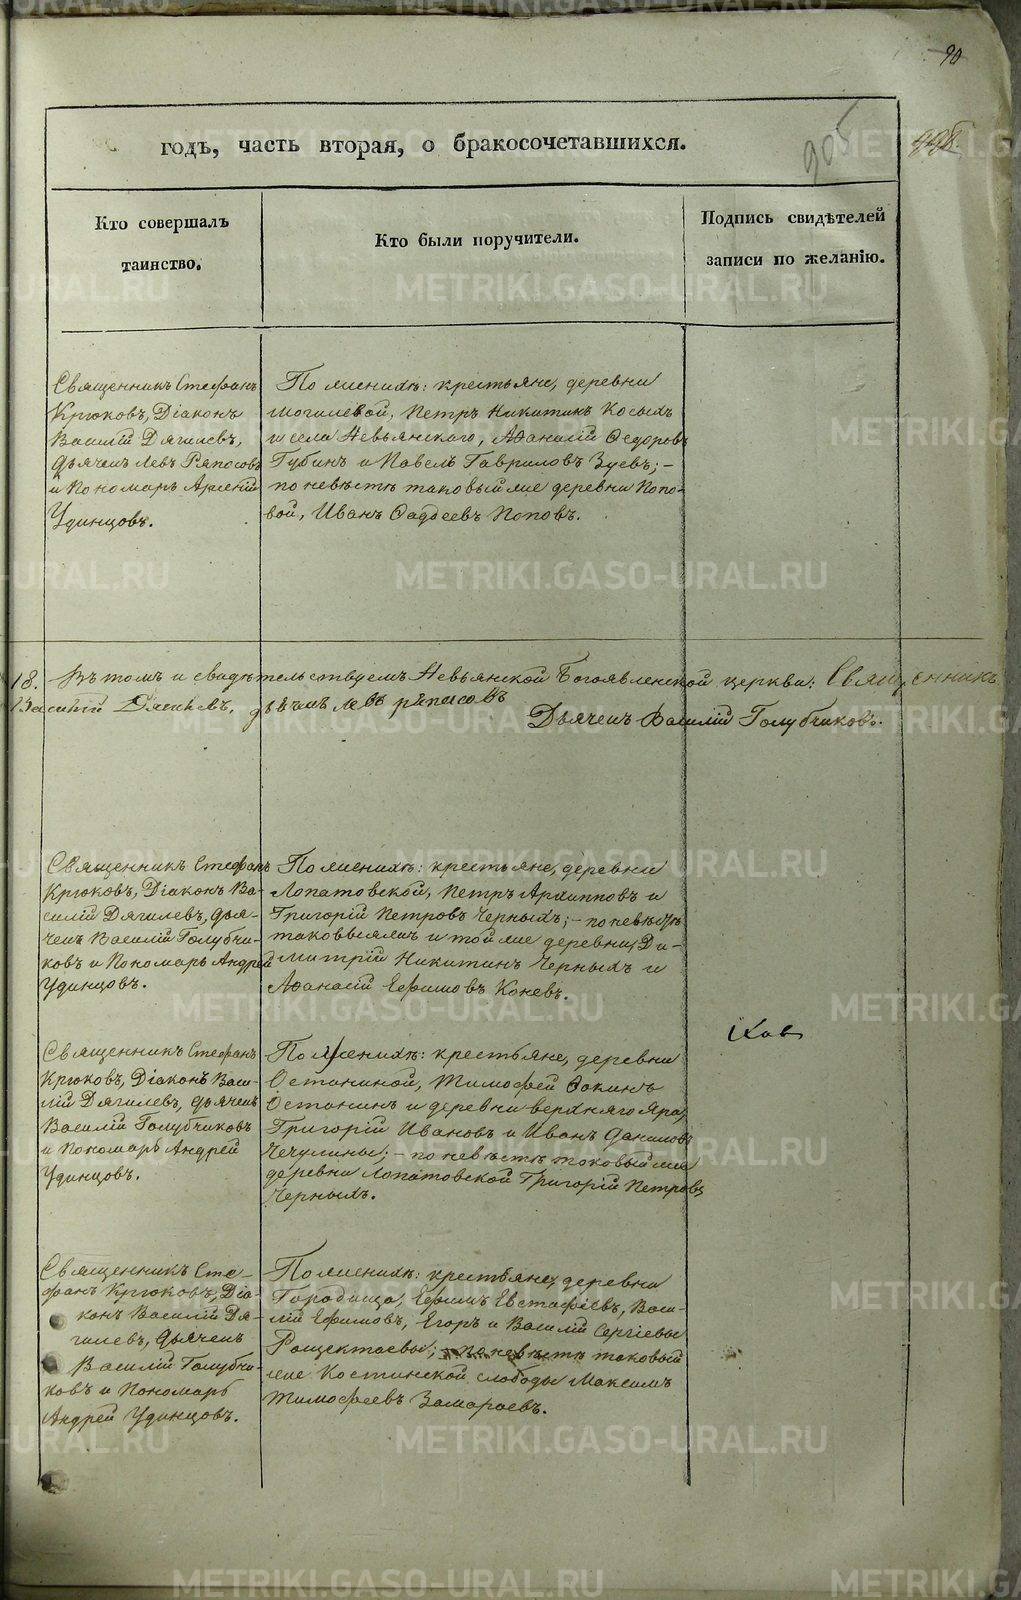 90
905
годъ, часть вторая, о бракосочетавшихся.
Кто совершалъ
таинство.
Кто были поручители.
Подпись свидѣтелей
записи по желанію.
Священникъ Стефанъ
Крюковъ, Діаконъ
Василій Дягилевъ,
Дьячекъ Левъ Ряпосовъ
и Пономарь Арсеній
Удинцовъ.
По женихѣ: крестьяне, деревни
Могилевой, Петръ Никитинъ Косыхъ
и села Невьянскаго, Аѳанасій Ѳедоровъ
Губинъ и Павелъ Гавриловъ Зуевъ; –
по невѣстѣ таковый же деревни Попо-
вой, Иванъ Ѳаддеевъ Поповъ.
18. Въ томъ и свидѣтельствуемъ Невьянской Богоявленской церкви: Священникъ
Василій Дягилевъ. дьячекъ левъ ряпасовъ
Дьячекъ Василій Голубчиковъ.
Священникъ Стефанъ
Крюковъ, Діаконъ Ва-
силій Дягилевъ, дья-
чекъ Василій Голубчи-
ковъ и Пономарь Андрей
Удинцовъ.
По женихѣ: крестьяне, деревни
Лопатовской, Петръ Архипповъ и
Григорій Петровъ Черныхъ; – по невѣстѣ
таковые же и той же деревни, Ди-
митрій Никитинъ Черныхъ и
Аѳанасій Ефимовъ Коневъ.
Священникъ Стефанъ
Крюковъ, Діаконъ Васи-
лій Дягилевъ, дьячекъ
Василій Голубчиковъ
и Пономарь Андрей
Удинцовъ.
По женихѣ: крестьяне, деревни
Останиной, Тимофей Ѳокинъ
Останинъ и деревни верхняго Яра,
Григорій Ивановъ и Иванъ Даниловъ
Чечулины; – по невѣстѣ таковый же
деревни Лопатовской Григорій Петровъ
Черныхъ.
Священникъ Сте-
фанъ Крюковъ, Діа-
конъ Василій Дя-
гилевъ, дьячекъ
Василій Голубчи-
ковъ и Пономарь
Андрей Удинцовъ.
По женихѣ: крестьяне, деревни
Городища, Ефимъ Евстафіевъ, Васи-
лій Ефимовъ, Егоръ и Василій Сергіевы
Рощектаевы; – по невѣстѣ таковый
же Костинской слободы Максимъ
Тимофеевъ Замараевъ.
METRIKI.GASO-URAL.RU